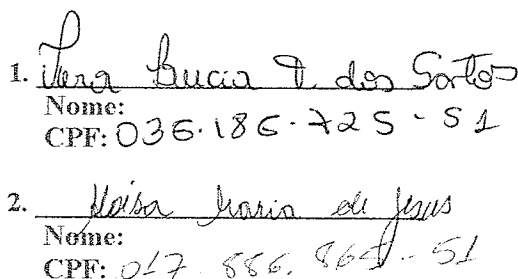 1. Vera Lucia D. dos Santos
Nome:
CPF: 036.186.725-51
2. Maria de Jesus
Nome:
CPF: 017.886.865-51